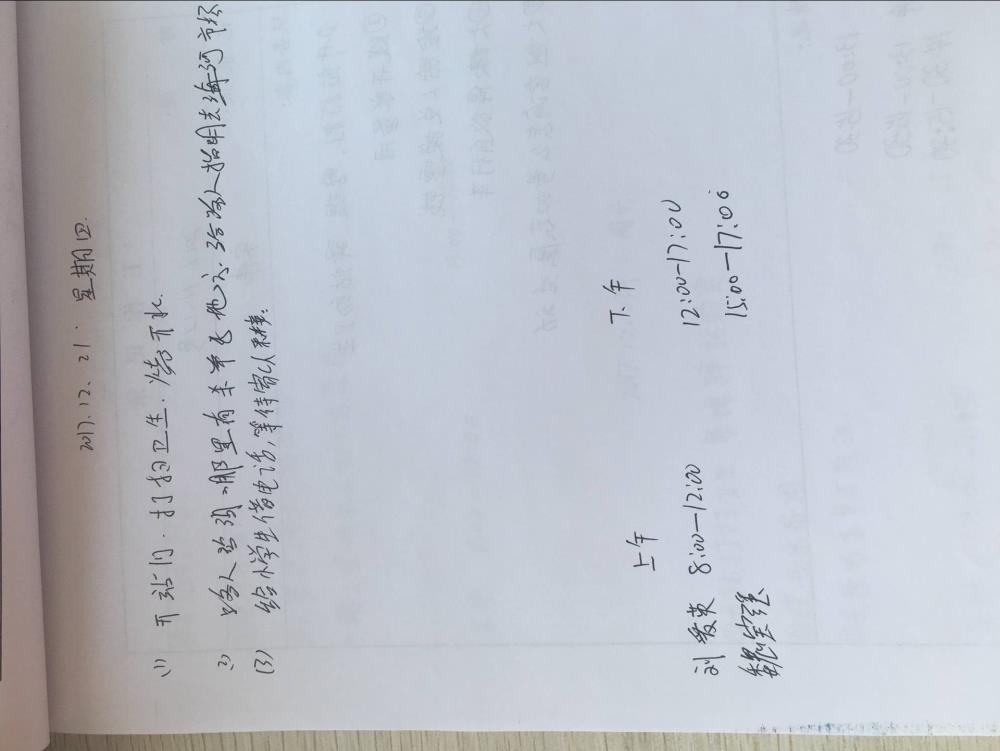 2017.12.21. 星期四.
(1) 开站门.打扫卫生.烧开水.
2) 路人咨询那里有卖 给路人指明去 河市场
(3) 给小学生借电话,等待家人来接.
上午 下午
刘爱英 8:00—12:00 12:00—17:00
魏宝强 15:00—17:00